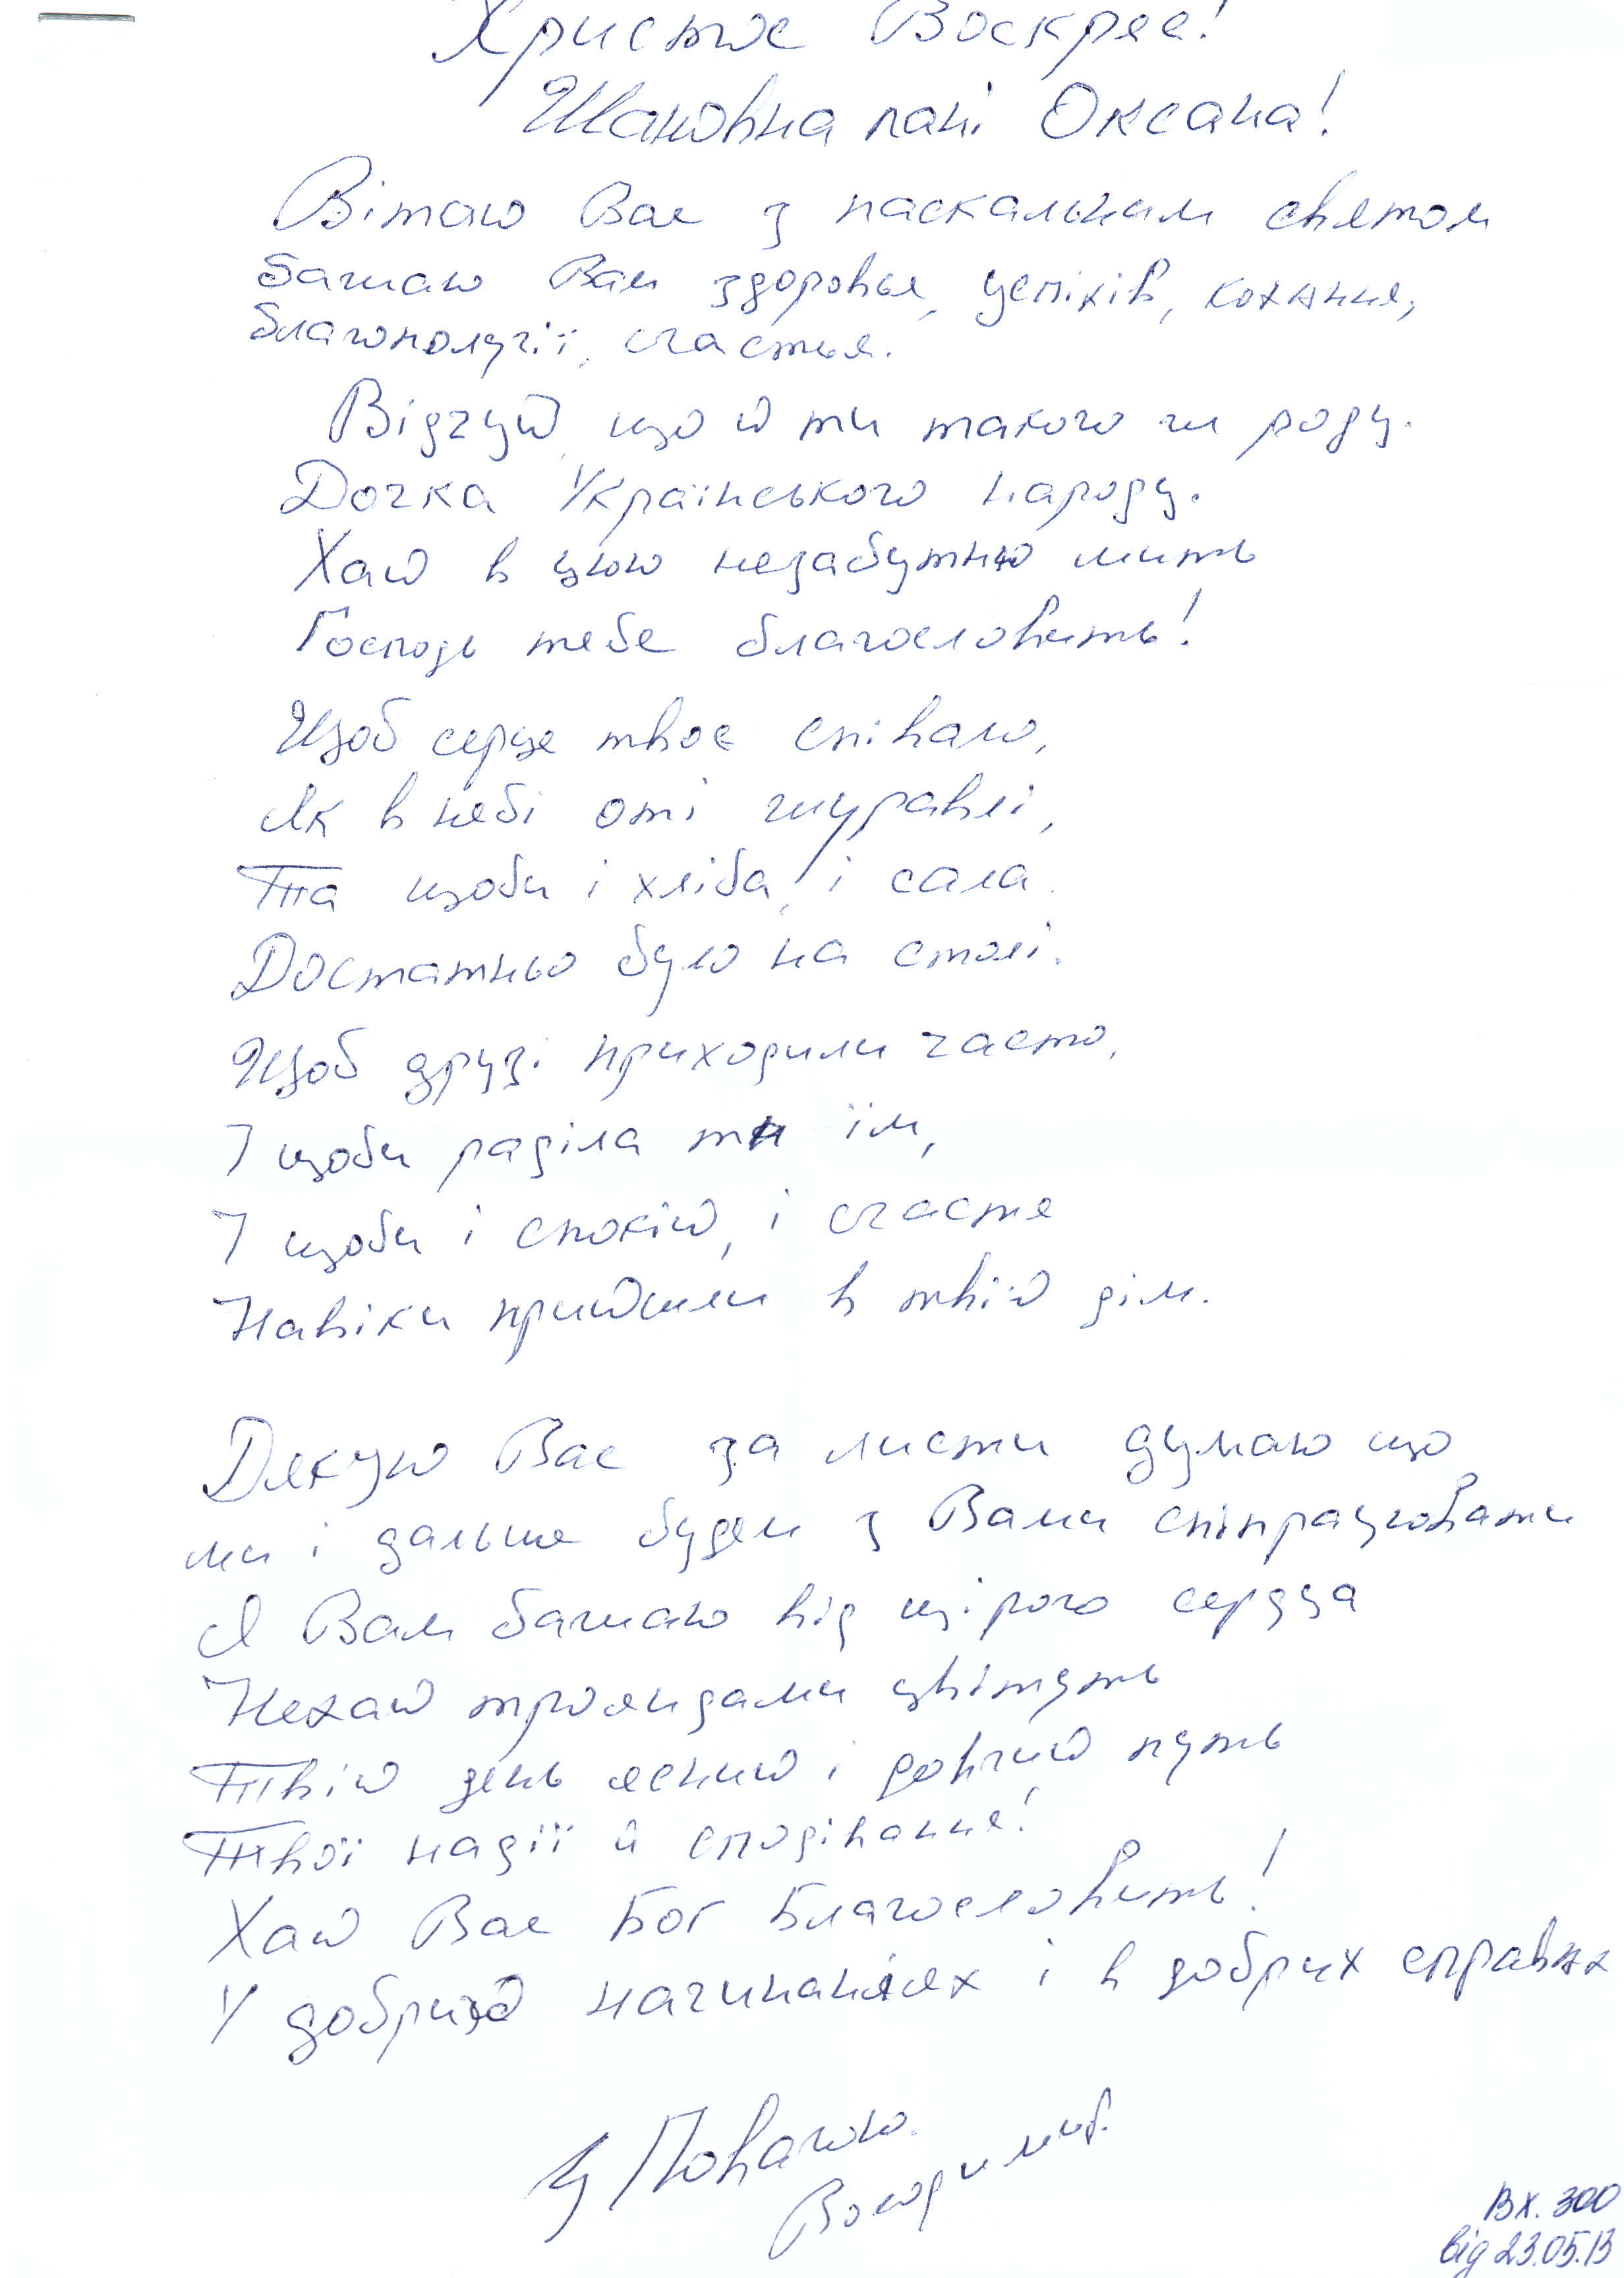 Христос Воскрес!
Шановна пані Оксана!
Вітаю Вас з паскальним святом
бажаю Вам здоровья, успіхів, кохання,
благополучії, счастья.
Відчуй, що й ти такого ж роду.
Дочка Українського народу.
Хай в цюю незабутню мить
Господь тебе благословить!
Щоб серце твоє співало,
Як в небі оті журавлі,
Та щоби і хліба, і сала
Достатньо було на столі.
Щоб друзі приходили часто,
І щоби раділа ти їм,
І щоби і спокій, і счастя
Навіки прийшли в твій дім.
Дякую Вас за листи думаю що
ми і дальше будем з Вами співпрацювати
Я Вам бажаю від щірого сердза
Нехай трояндами цвітуть
Твій день ясний і довгий путь
Твої надії й сподівання!
Хай Вас Бог Благословить!
У добрих начинаннях і в добрих справах
З Повагою.
Володимир.
Вх. 300
від 23.05.13